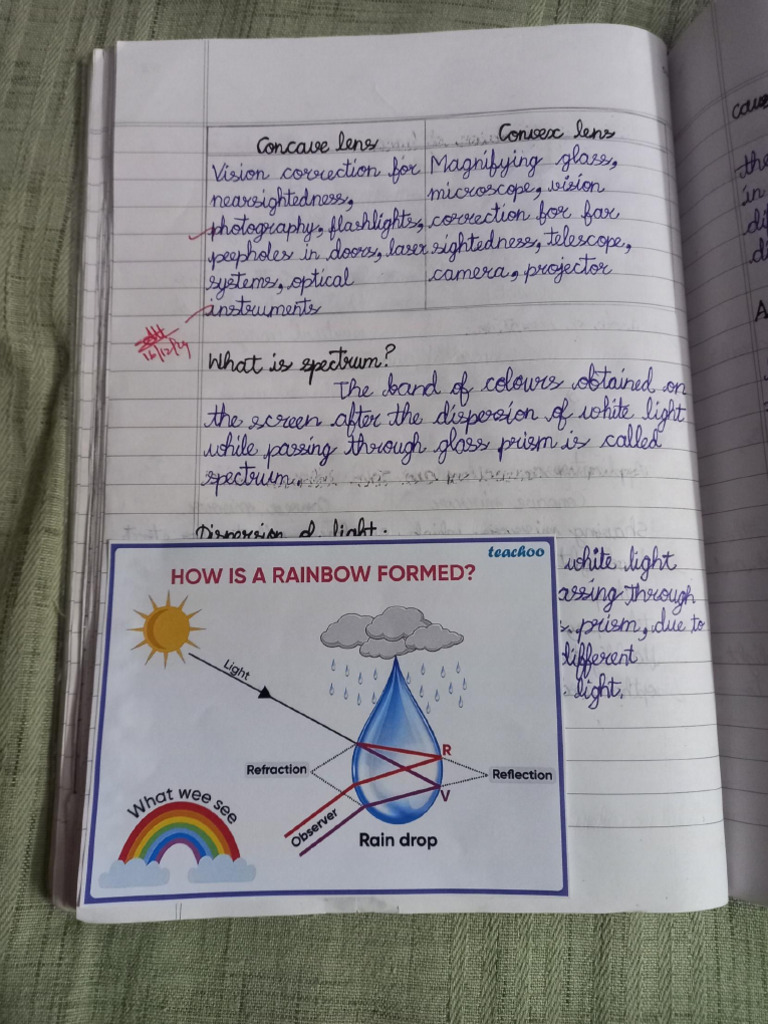 Concave lens
Convex lens
Vision correction for
nearsightedness,
photography, flashlights,
peepholes in doors, laser
systems, optical
instruments
Magnifying glass,
microscope, vision
correction for far
sightedness, telescope,
camera, projector
16/12/24
What is spectrum?
The band of colours obtained on
the screen after the dispersion of white light
while passing through glass prism is called
spectrum.
Dispersion of light:
white light
through
prism, due to
different
light.
teachoo
HOW IS A RAINBOW FORMED?
Light
R
Refraction
Reflection
V
What wee see
Observer
Rain drop
the
in